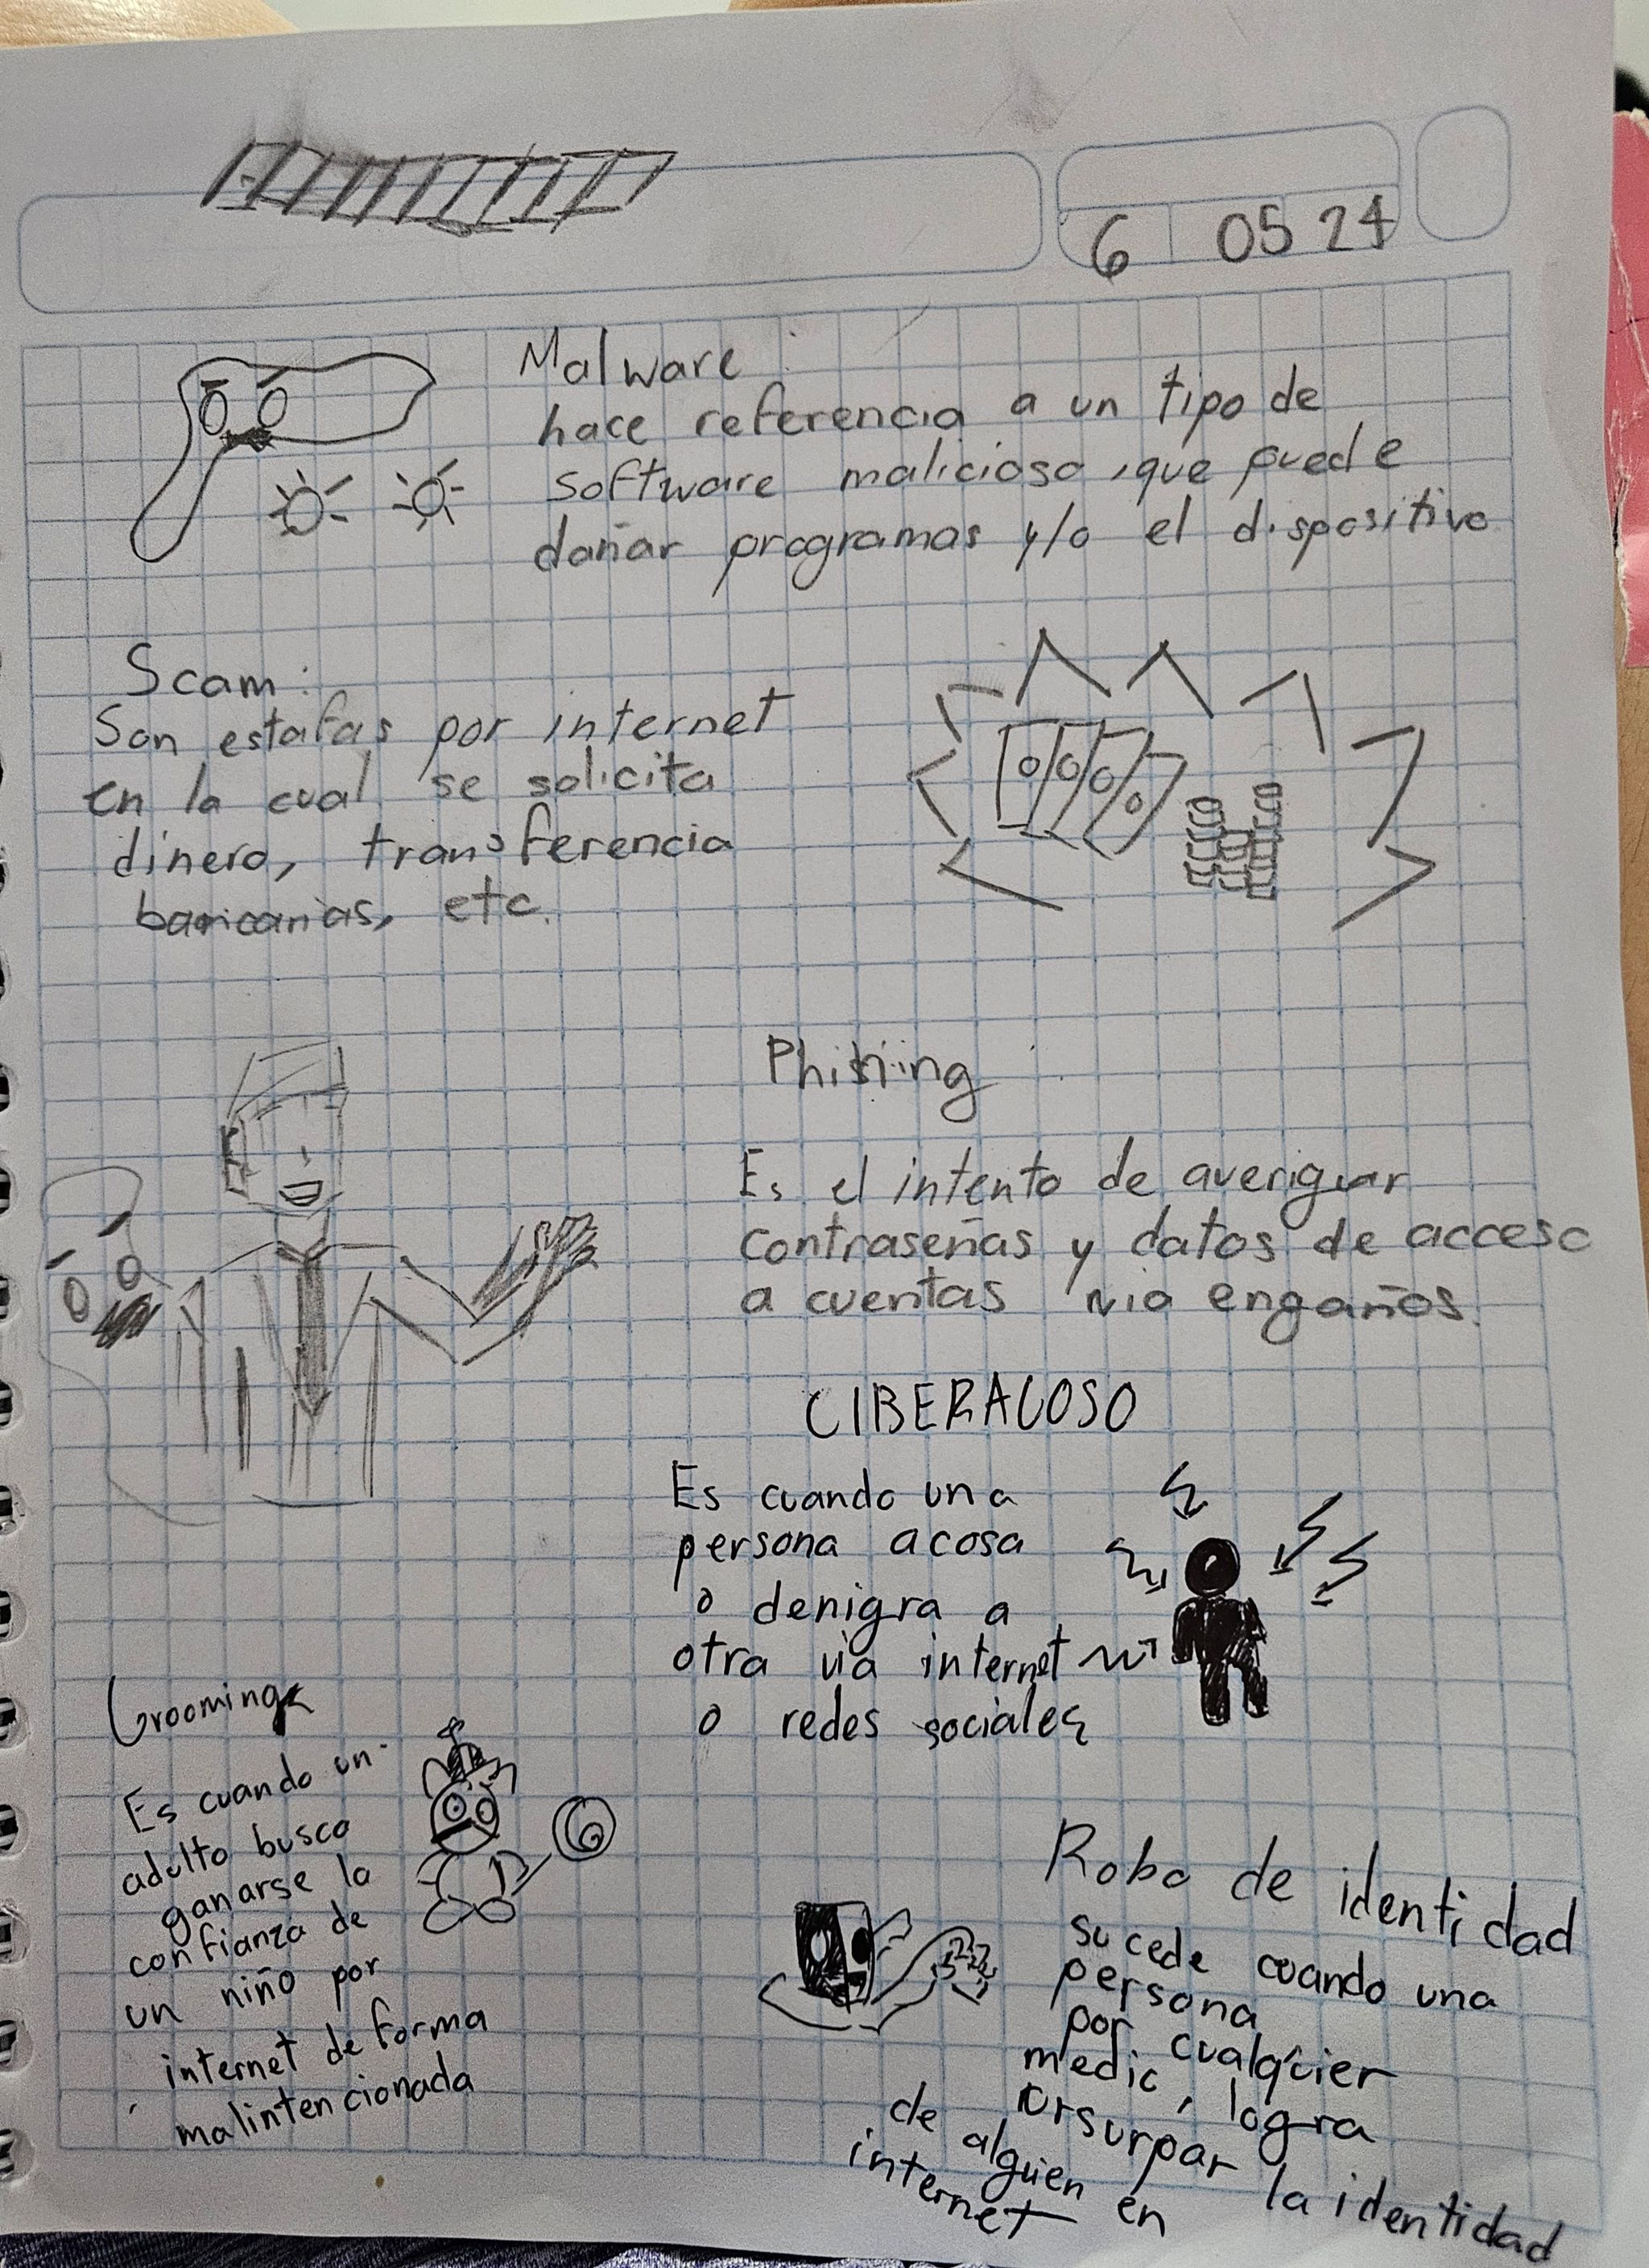 6 05 24
Malware :
hace referencia a un tipo de
software malicioso, que puede
dañar programas y/o el dispositivo
Scam:
Son estafas por internet
en la cual se solicita
dinero, transferencia
bancarias, etc.
Phishing :
Es el intento de averiguar
contraseñas y datos de acceso
a cuentas via engaños.
CIBERACOSO
Es cuando una
persona acosa
o denigra a
otra via internet
o redes sociales
Grooming
Es cuando un
adulto busca
ganarse la
confianza de
un niño por
internet de forma
malintencionada
Robo de identidad
sucede cuando una
persona
por cualquier
medio, logra
ursurpar la identidad
de alguien en
internet